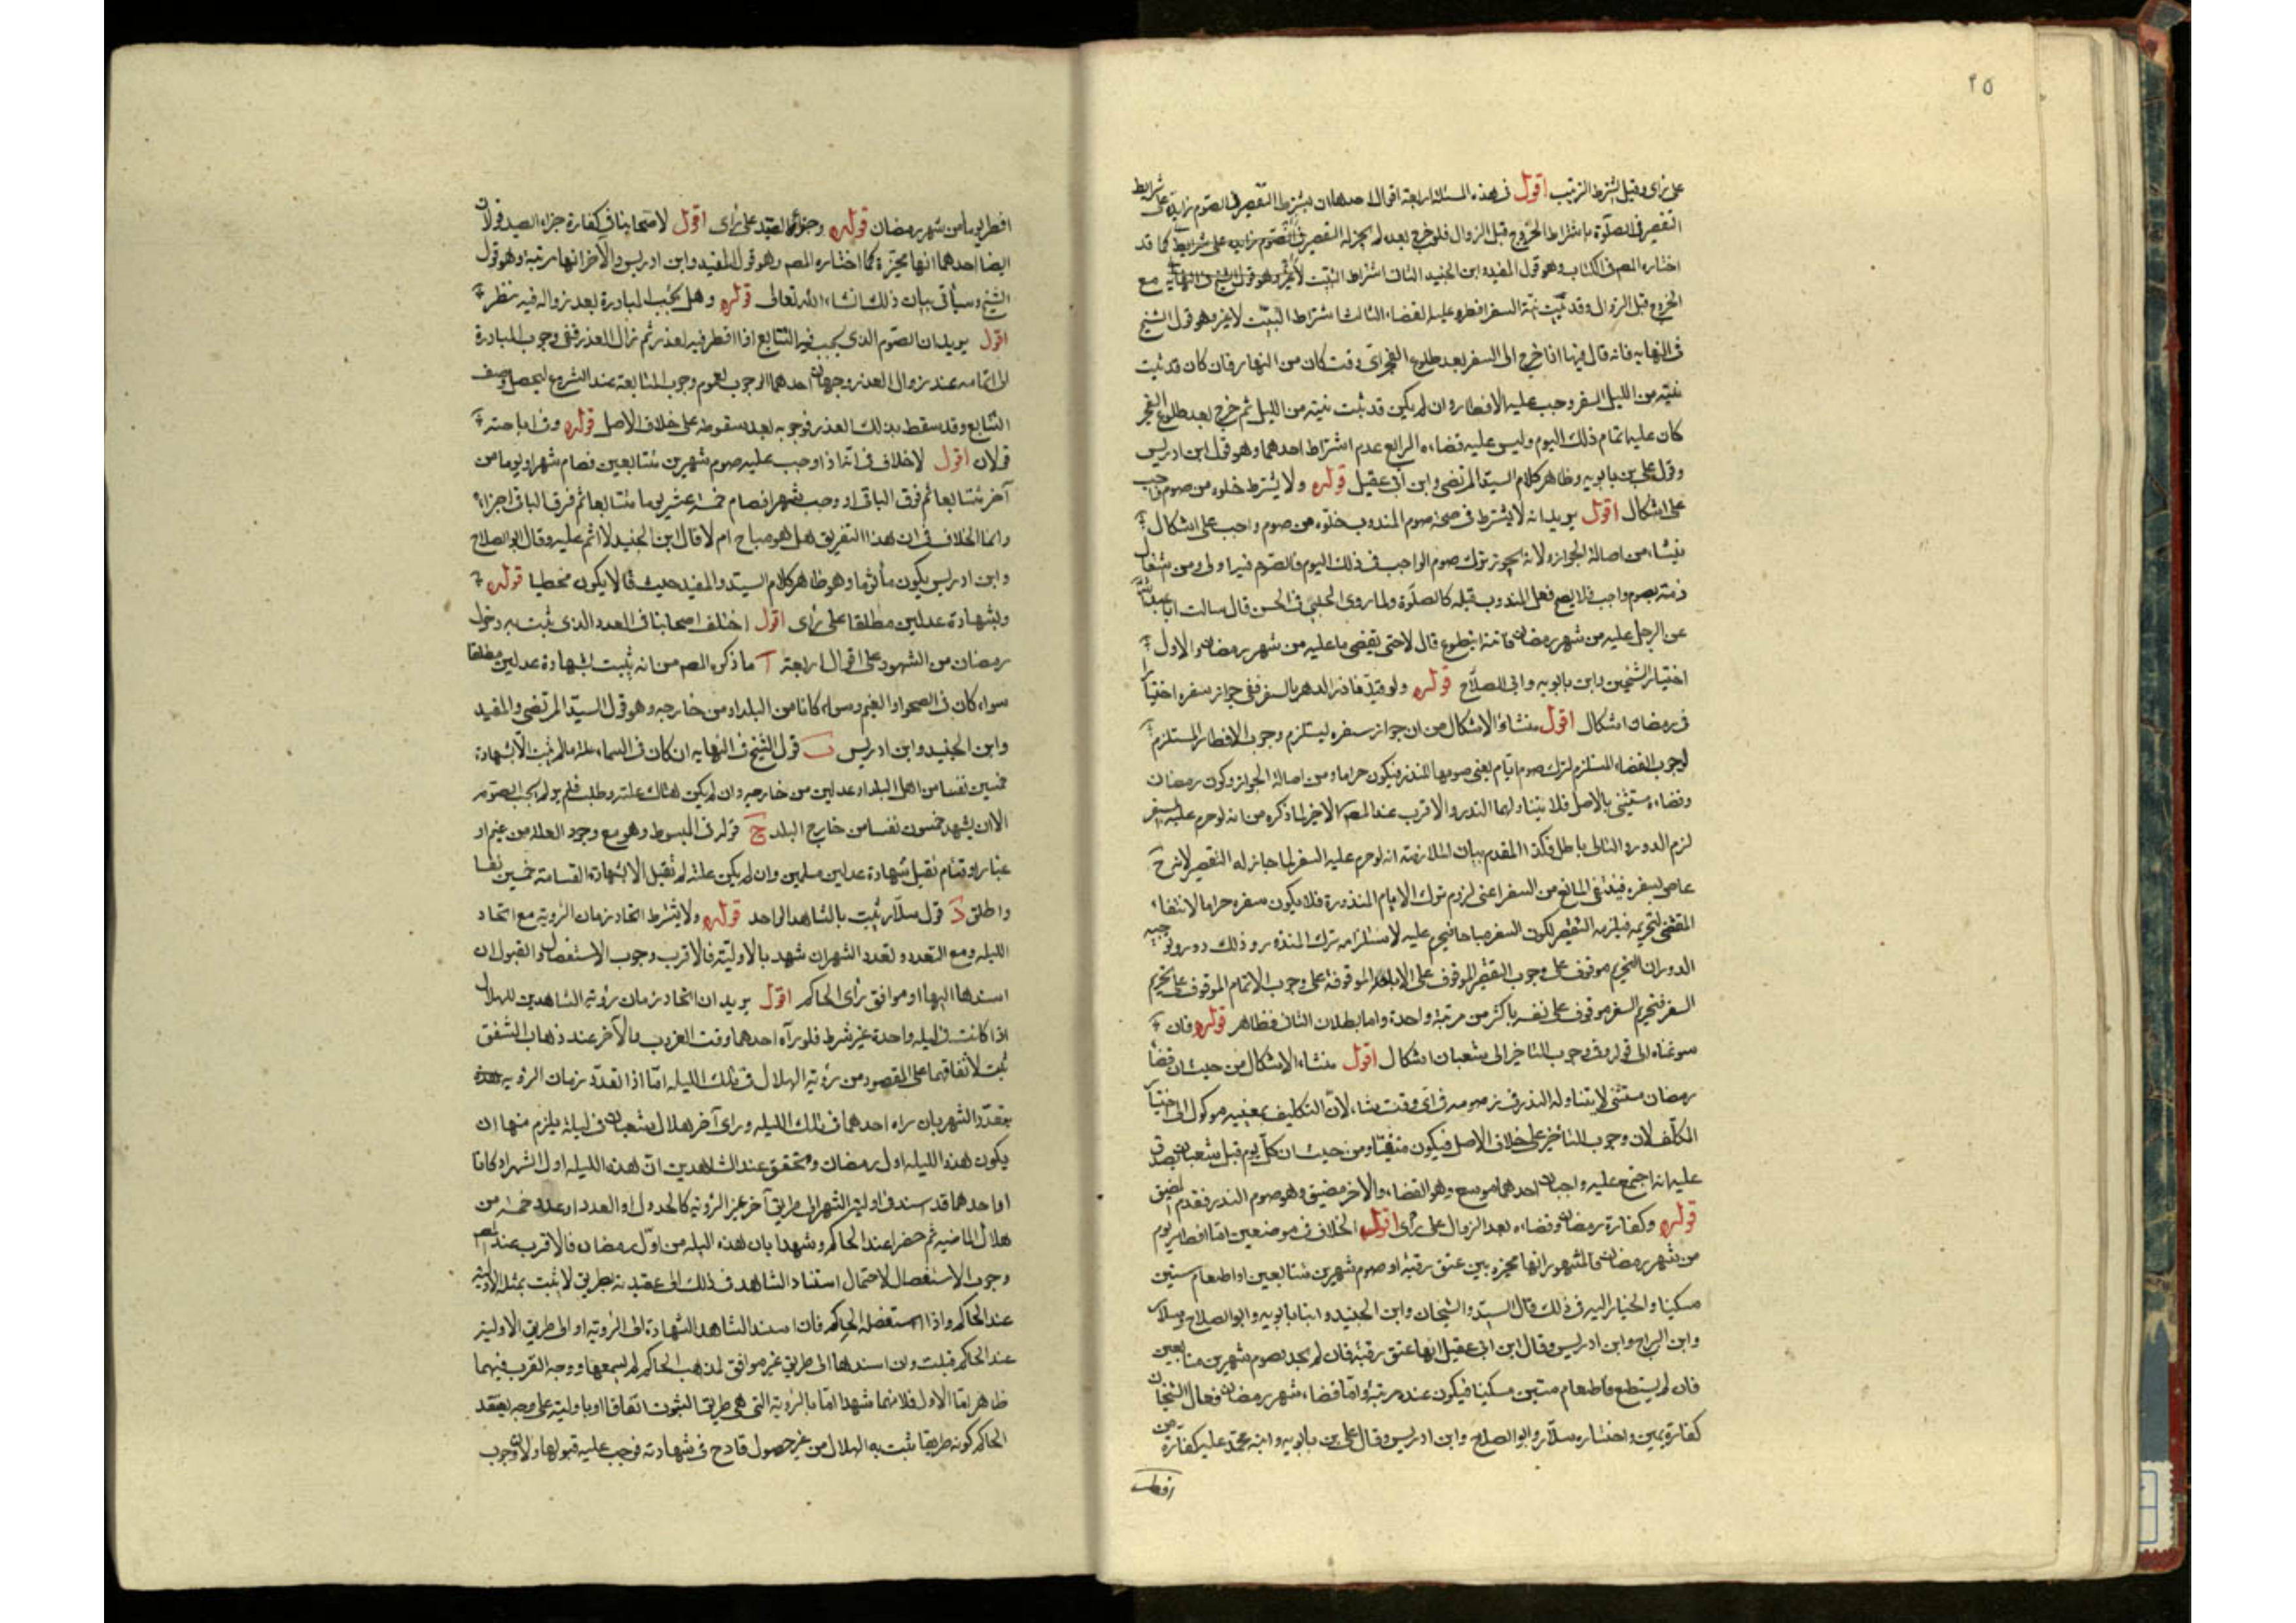 ٢٥
على رأى وقيل يشترط التبييت اقول فى هذه المسئلة اربعة اقوال احدها ان يشترط التقصير فى الصوم زيادة على شرايط
التقصير فى الصلوة باشتراط الخروج قبل الزوال فلو خرج بعده لم يجز له التقصير فى الصوم زيادة على شرايط كما قد
اختاره المص فى الكتاب وهو قول المفيد وابن الجنيد الثانى اشتراط التبييت لا غير وهو قول الشيخ فى النهاية مع
الخروج قبل الزوال وقد بيت نية السفر افطر وعليه القضاء الثالث اشتراط التبييت لا غير وهو قول الشيخ
فى النهاية فانه قال فيها اذا خرج الى السفر بعد طلوع الفجر اى وقت كان من النهار فان كان قد بيت
نيته من الليل السفر وجب عليه الافطار وان لم يكن قد بيت نيته من الليل ثم خرج بعد طلوع الفجر
كان عليه اتمام ذلك اليوم وليس عليه قضاءه الرابع عدم اشتراط احدهما وهو قول ابن ادريس
وقول على بن بابويه وظاهر كلام السيد المرتضى وابن ابى عقيل قوله ولا يشترط خلوه من صوم واجب
على اشكال اقول يريد انه لا يشترط فى صحة صوم المندوب خلوه من صوم واجب على اشكال
ينشاء من اصالة الجواز ولانه يجوز ترك صوم الواجب فى ذلك اليوم فالصوم فيه اولى ومن اشتغال
ذمته بصوم واجب فلا يصح فعل المندوب قبله كالصلوة ولما روى الحلبى فى الحسن قال سالت ابا عبد الله
عن الرجل عليه من شهر رمضان طائفة ايتطوع قال لا حتى يقضى ما عليه من شهر رمضان والاول
اختيار الشيخين وابن بابويه وابى الصلاح قوله ولو قيد ناذر الدهر بالسفر ففى جواز سفره اختيارا
فى رمضان اشكال اقول منشاؤ الاشكال من ان جواز سفره يستلزم وجوب الافطار المستلزم
لوجوب القضاء المستلزم لترك صوم ايام يعنى صومها للنذر فيكون حراما ومن اصالة الجواز وكون رمضان
وقضاءه مستثنى بالاصل فلا يتناولهما النذر والاقرب عند المص الاخير لما ذكره من انه لو حرم عليه السفر
لزم الدور والتالى باطل فكذا المقدم بيان الملازمة انه لو حرم عليه السفر لما جاز له التقصير لانه ح
عاص بسفره فينتفى المانع من السفر اعنى لزوم ترك الايام المنذورة فلا يكون سفره حراما لانتفاء
المقتضى لتحريمه فيلزمه التقصير لكون السفر مباحا فيحرم عليه لاستلزامه ترك المنذور وذلك دور وتوجيه
الدور ان التحريم موقوف على وجوب التقصير الموقوف على الاباحة الموقوفة على وجوب الاتمام الموقوف على تحريم
السفر فتحريم السفر موقوف على نفسه باكثر من مرتبة واحدة واما بطلان الثانى فظاهر قوله فان
سوغناه الى قوله وفى وجوب التاخير الى شعبان اشكال اقول منشاء الاشكال من حيث ان قضاء
رمضان مستثنى لا يتناوله النذر فيصومه فى اى وقت شاء لان التكليف بتعيينه موكول الى اختيار
المكلف لان وجوب التاخير على خلاف الاصل فيكون منفيا ومن حيث ان كل يوم قبل شعبان يصدق
عليه انه اجتمع عليه واجبان احدهما موسع وهو القضاء والاخر مضيق وهو صوم النذر فقدم المضيق
قوله وكفارة رمضان وقضاءه بعد الزوال على رأى اقول الخلاف فى موضعين اما افطار يوم
من شهر رمضان فالمشهور انها مخيرة بين عتق رقبة او صوم شهرين متتابعين او اطعام ستين
مسكينا والخيار اليه فى ذلك قال السيد والشيخان وابن الجنيد وابنا بابويه وابو الصلاح وسلار
وابن البراج وابن ادريس وقال ابن ابى عقيل انها عتق رقبة فان لم يجد يصوم شهرين متتابعين
فان لم يستطع فاطعام ستين مسكينا فيكون عنده مرتبة واما قضاء شهر رمضان فقال الشيخان
كفارة يمين واختاره سلار وابو الصلاح وابن ادريس وقال على بن بابويه وابنه محمد عليه كفارة من
افطر
افطر يوما من شهر رمضان قوله وجزاء الصيد على رأى اقول لاصحابنا فى كفارة جزاء الصيد قولان
ايضا احدهما انها مخيرة كما اختاره المص وهو قول المفيد وابن ادريس والآخر انها مرتبة وهو قول
الشيخ وسياتى بيان ذلك انشاء الله تعالى قوله وهل يجب المبادرة بعد زواله فيه نظر
اقول يريد ان الصوم الذى يجب فيه التتابع اذا افطر فيه لعذر ثم زال العذر ففى وجوب المبادرة
الى اتمامه عند زوال العذر وجهان احدهما الوجوب لعموم وجوب المتابعة عند الشروع ليحصل وصف
التتابع وقد سقط بذلك العذر فوجوبه بعد سقوطه على خلاف الاصل قوله وفى اباحته
قولان اقول لا خلاف فى انه اذا وجب عليه صوم شهرين متتابعين فصام شهرا ويوما من
آخر متتابعا ثم فرق الباقى او وجب شهر فصام خمسة عشر يوما متتابعا ثم فرق الباقى اجزأه
وانما الخلاف فى ان هذا التفريق هل هو مباح ام لا قال ابن الجنيد لا اثم عليه وقال ابو الصلاح
وابن ادريس يكون مأثوما وهو ظاهر كلام السيد والمفيد حيث قالا يكون مخطيا قوله
وبشهادة عدلين مطلقا على رأى اقول اختلف اصحابنا فى العدد الذى يثبت به دخول
رمضان من الشهود على اقوال اربعة آ ما ذكره المص من انه يثبت بشهادة عدلين مطلقا
سواء كان فى الصحو او الغيم وسواء كانا من البلد او من خارجه وهو قول السيد المرتضى والمفيد
وابن الجنيد وابن ادريس ب قول الشيخ فى النهاية ان كان فى السماء علة ما لم يثبت الا بشهادة
خمسين نفسا من اهل البلد او عدلين من خارجه وان لم يكن هناك علة وطلب فلم ير لم يجب الصوم
الا ان يشهد خمسون نفسا من خارج البلد ج قوله فى المبسوط وهو مع وجود العلة من غيم او
غبار او قتام تقبل شهادة عدلين مسلمين وان لم يكن علة لم تقبل الا شهادة القسامة خمسين نفسا
واطلق د قول سلار يثبت بالشاهد الواحد قوله ولا يشترط اتحاد زمان الرؤية مع اتحاد
الليلة ومع التعدد وتعدد الشهر ان شهد بالاولية فالاقرب وجوب الاستفصال والقبول ان
اسندها اليها او موافق رأى الحاكم اقول يريد ان اتحاد زمان رؤية الشاهدين للهلال
اذا كانت فى ليلة واحدة غير شرط فلو رآه احدهما وقت الغروب والآخر عند ذهاب الشفق
ثبت لاتفاقهما على المقصود من رؤية الهلال فى تلك الليلة اما اذا تعدد زمان الرؤية
بتعدد الشهر بان رآه احدهما فى تلك الليلة ورأى آخر هلال شعبان فى ليلة يلزم منها ان
يكون هذه الليلة اول رمضان وتحقق عند الشاهدين ان هذه الليلة اول الشهر او كانا
او احدهما قد اسند فى اولية الشهر الى طريق آخر غير الرؤية كالجدول او العدد او عدد خمسة من
هلال الماضية ثم حضرا عند الحاكم وشهدا بان هذه الليلة من اول رمضان فالاقرب عند المص
وجوب الاستفصال لاحتمال استناد الشاهد فى ذلك الى عقيدته بطريق لا يثبت بمثله الاولية
عند الحاكم واذا استفصله الحاكم فان اسند الشاهد الشهادة الى الرؤية او الى طريق الاولية
عند الحاكم قبلت وان اسندها الى طريق غير موافق لمذهب الحاكم لم يسمعها ووجه القرب فيهما
ظاهر اما الاول فلانهما شهدا اما بالرؤية التى هى طريق الثبوت اتفاقا او باولية على وجه يعتقد
الحاكم كونه طريقا يثبت به الهلال من غير حصول قادح فى شهادته فوجب عليه قبولها والا لوجوب